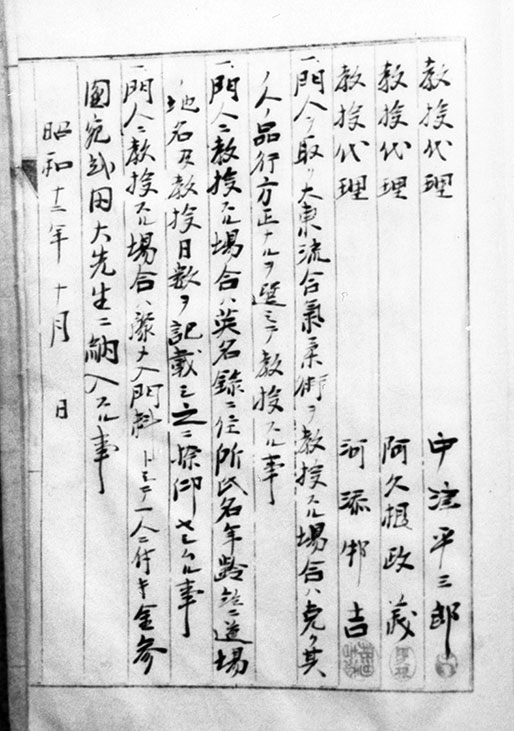 教授代理 中津平三郎
教授代理 阿久根政義
教授代理 河添邦吉
一、門人ヲ取リ大東流合氣柔術ヲ教授スル場合ハ克ク其
ノ人ノ品行方正ナルヲ選ミテ教授スル事
一、門人ニ教授スル場合ハ英名録ニ住所氏名年齢並ニ道場
地名及教授日数ヲ記載シ之ニ捺印セシムル事
一、門人ニ教授スル場合ハ豫メ入門料トシテ一人ニ付キ金参
圓宛武田大先生ニ納入スル事
昭和十二年十月 日